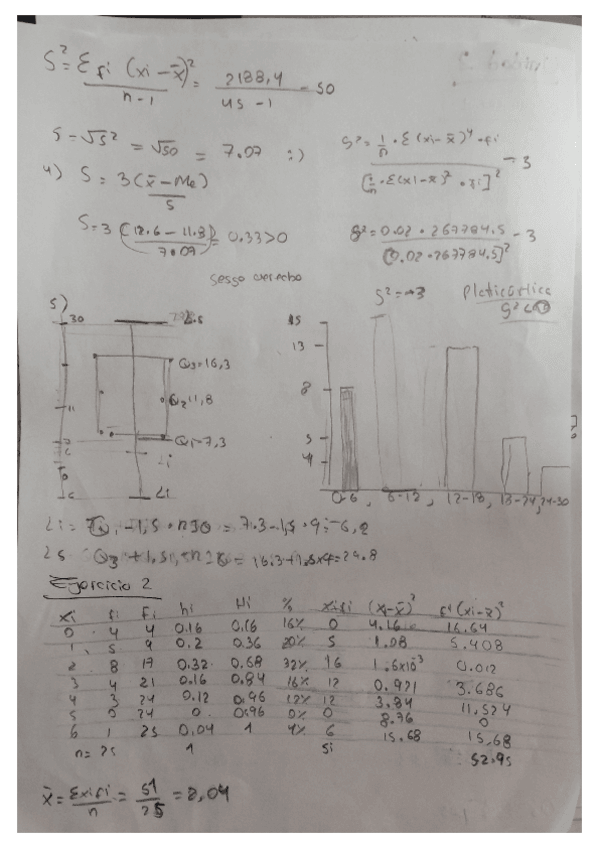 S² = Σ fi (xi - x̄)² / n-1 = 2188,4 / 45 - 1 = 50
S = √S² = √50 = 7.07 :)
g² = 1/n · Σ(xi - x̄)⁴ · fi / [1/n · Σ(xi - x̄)² · fi]² - 3
4) S = 3(x̄ - Me) / S
S = 3 (12.6 - 11.8) / 7.07 = 0.33 > 0
g² = 0.02 · 267784.5 / (0.02 · 267784.5)² - 3
sesgo derecho
g² = -3
Platicúrtica
g² < 0
5)
30
Q3 = 16,3
Q2 11,8
Q1 = 7,3
Li
Li
15
13
8
5
4
0-6, 6-12, 12-18, 18-24, 24-30
Li = Q1 - 1,5 · RIQ = 7.3 - 1,5 · 9 = -6,2
Ls Q3 + 1,5 · RIQ = 16.3 + 1.5 x 9 = 29.8
Ejercicio 2
xi fi Fi hi Hi % xifi (xi - x̄)² fi (xi - x̄)²
0 4 4 0.16 0.16 16% 0 4.16 16.64
1 5 9 0.2 0.36 20% 5 1.08 5.408
2 8 17 0.32 0.68 32% 16 1.6x10⁻³ 0.012
3 4 21 0.16 0.84 16% 12 0.921 3.686
4 3 24 0.12 0.96 12% 12 3.84 11.524
5 0 24 0. 0.96 0% 0 8.76 0
6 1 25 0.04 1 4% 6 15.68 15,68
n = 25 1 51 52.95
x̄ = Σxifi / n = 51 / 25 = 2,04